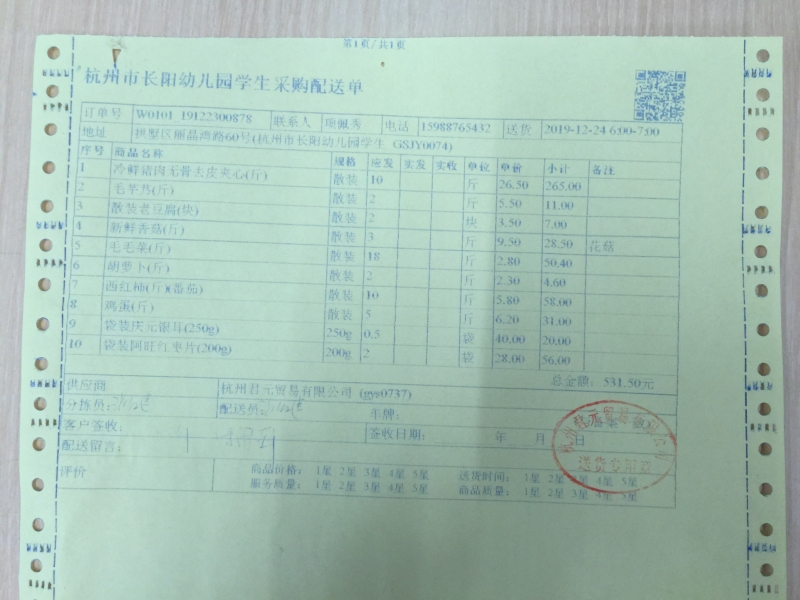 第1页/共1页
杭州市长阳幼儿园学生采购配送单
订单号 W0101 19122300878 联系人 佩秀 电话 15988765432 送货 2019-12-24 6:00-7:00
地址 拱墅区丽晶湾路60号(杭州市长阳幼儿园学生 GSJY0074)
序号 商品名称 规格 应发 实发 实收 单位 单价 小计 备注
1 冷鲜猪肉无骨去皮夹心(斤) 散装 10 斤 26.50 265.00
2 毛芋艿(斤) 散装 2 斤 5.50 11.00
3 散装老豆腐(块) 散装 2 块 3.50 7.00
4 新鲜香菇(斤) 散装 3 斤 9.50 28.50 花菇
5 毛毛菜(斤) 散装 18 斤 2.80 50.40
6 胡萝卜(斤) 散装 2 斤 2.30 4.60
7 西红柿(斤)(番茄) 散装 10 斤 5.80 58.00
8 鸡蛋(斤) 散装 5 斤 6.20 31.00
9 袋装庆元银耳(250g) 250g 0.5 袋 40.00 20.00
10 袋装阿旺红枣片(200g) 200g 2 袋 28.00 56.00
总金额: 531.50元
供应商 杭州君元贸易有限公司 (gys0737)
分拣员: 配送员: 车牌:
客户签收: 签收日期: 年 月 日
配送留言:
评价 商品价格: 1星 2星 3星 4星 5星 送货时间: 1星 2星 3星 4星 5星
服务质量: 1星 2星 3星 4星 5星 商品质量: 1星 2星 3星 4星 5星
送货专用章